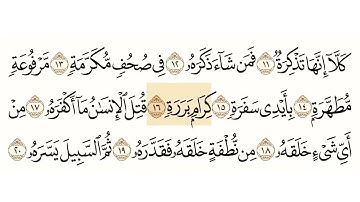 كَلَّآ إِنَّهَا تَذْكِرَةٌ ١١ فَمَن شَآءَ ذَكَرَهُۥ ١٢ فِى صُحُفٍ مُّكَرَّمَةٍ ١٣ مَّرْفُوعَةٍ
مُّطَهَّرَةٍۭ ١٤ بِأَيْدِى سَفَرَةٍ ١٥ كِرَامٍۭ بَرَرَةٍ ١٦ قُتِلَ ٱلْإِنسَٰنُ مَآ أَكْفَرَهُۥ ١٧ مِنْ
أَىِّ شَىْءٍ خَلَقَهُۥ ١٨ مِن نُّطْفَةٍ خَلَقَهُۥ فَقَدَّرَهُۥ ١٩ ثُمَّ ٱلسَّبِيلَ يَسَّرَهُۥ ٢٠